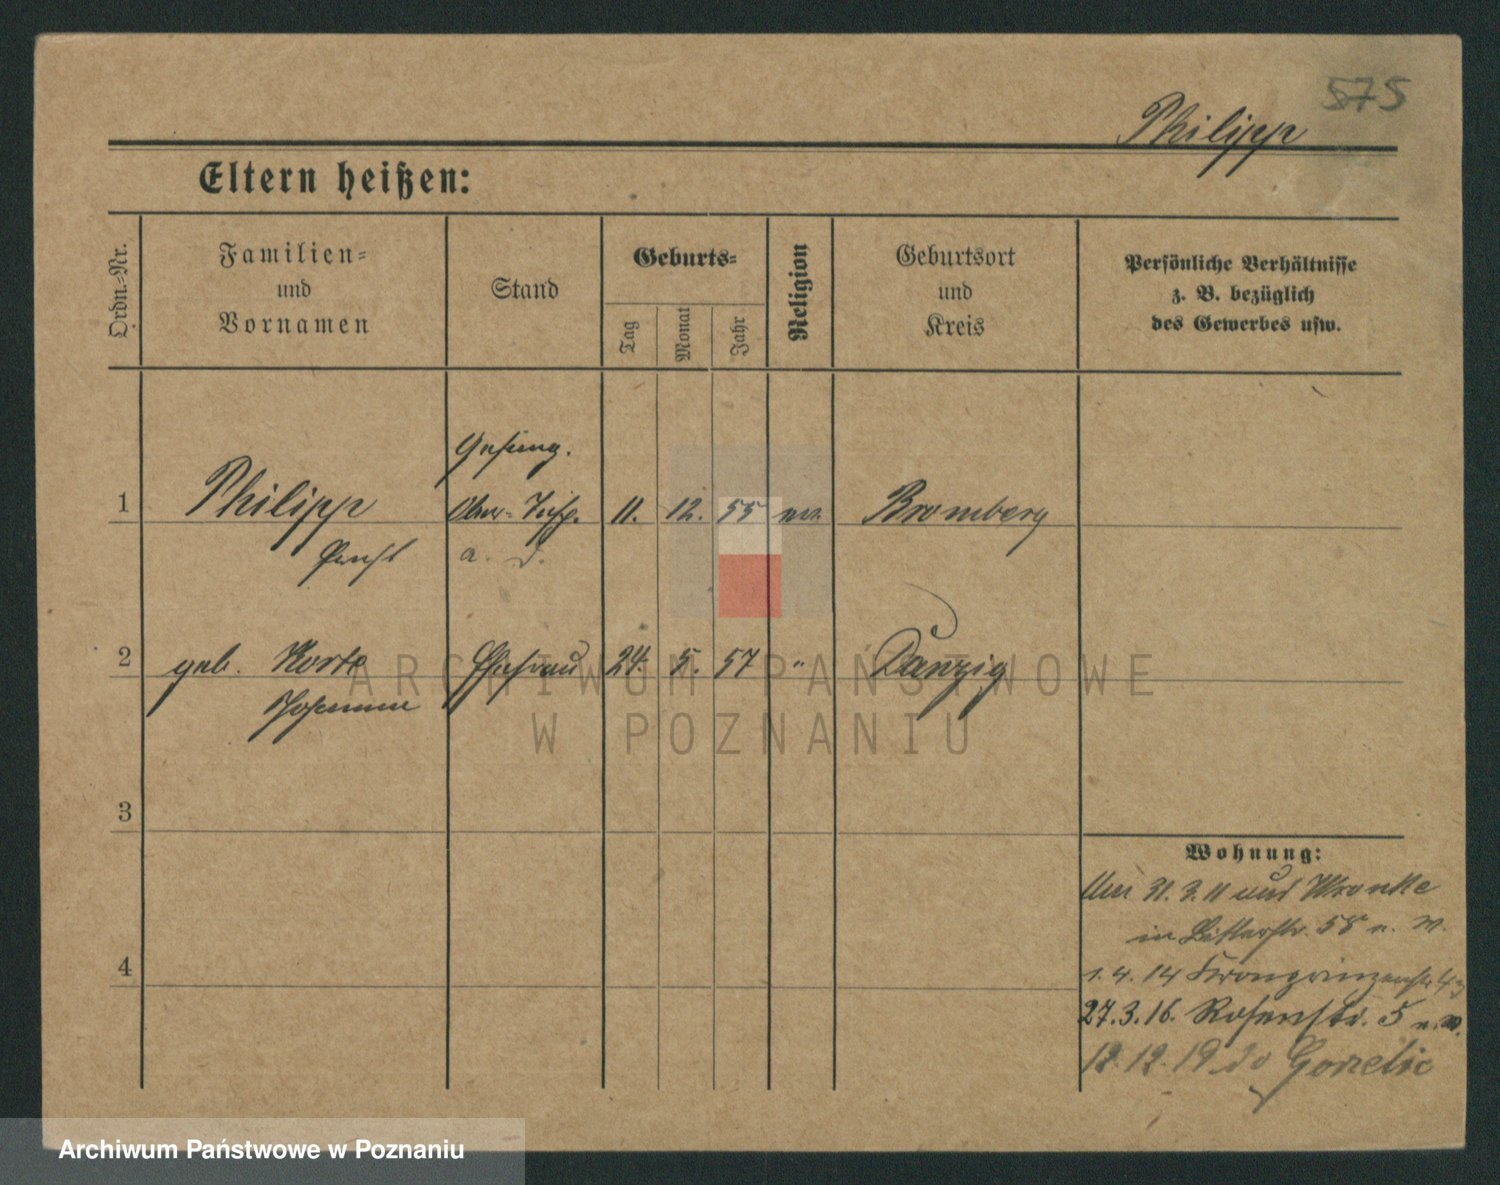 575
Philipp
Eltern heißen:
Ordn.-Nr.
Familien-
und
Vornamen
Stand
Geburts-
Tag
Monat
Jahr
Religion
Geburtsort
und
Kreis
Persönliche Verhältnisse
z. B. bezüglich
des Gewerbes usw.
Gefäng.
1 Philipp Ober-Insp. 11. 12. 55 ev. Bromberg
a. D.
2 geb. Korte Ehefrau 24. 5. 57 " Danzig
Johanna
3
Wohnung:
Am 31. 3. 11 aus Wronke
in Bitterstr. 55 n. W.
4
1. 4. 14 Kronprinzenstr.
27. 3. 16. Rosenstr. 5 n. W.
12. 12. 19
ARCHIWUM PAŃSTWOWE
W POZNANIU
Archiwum Państwowe w Poznaniu